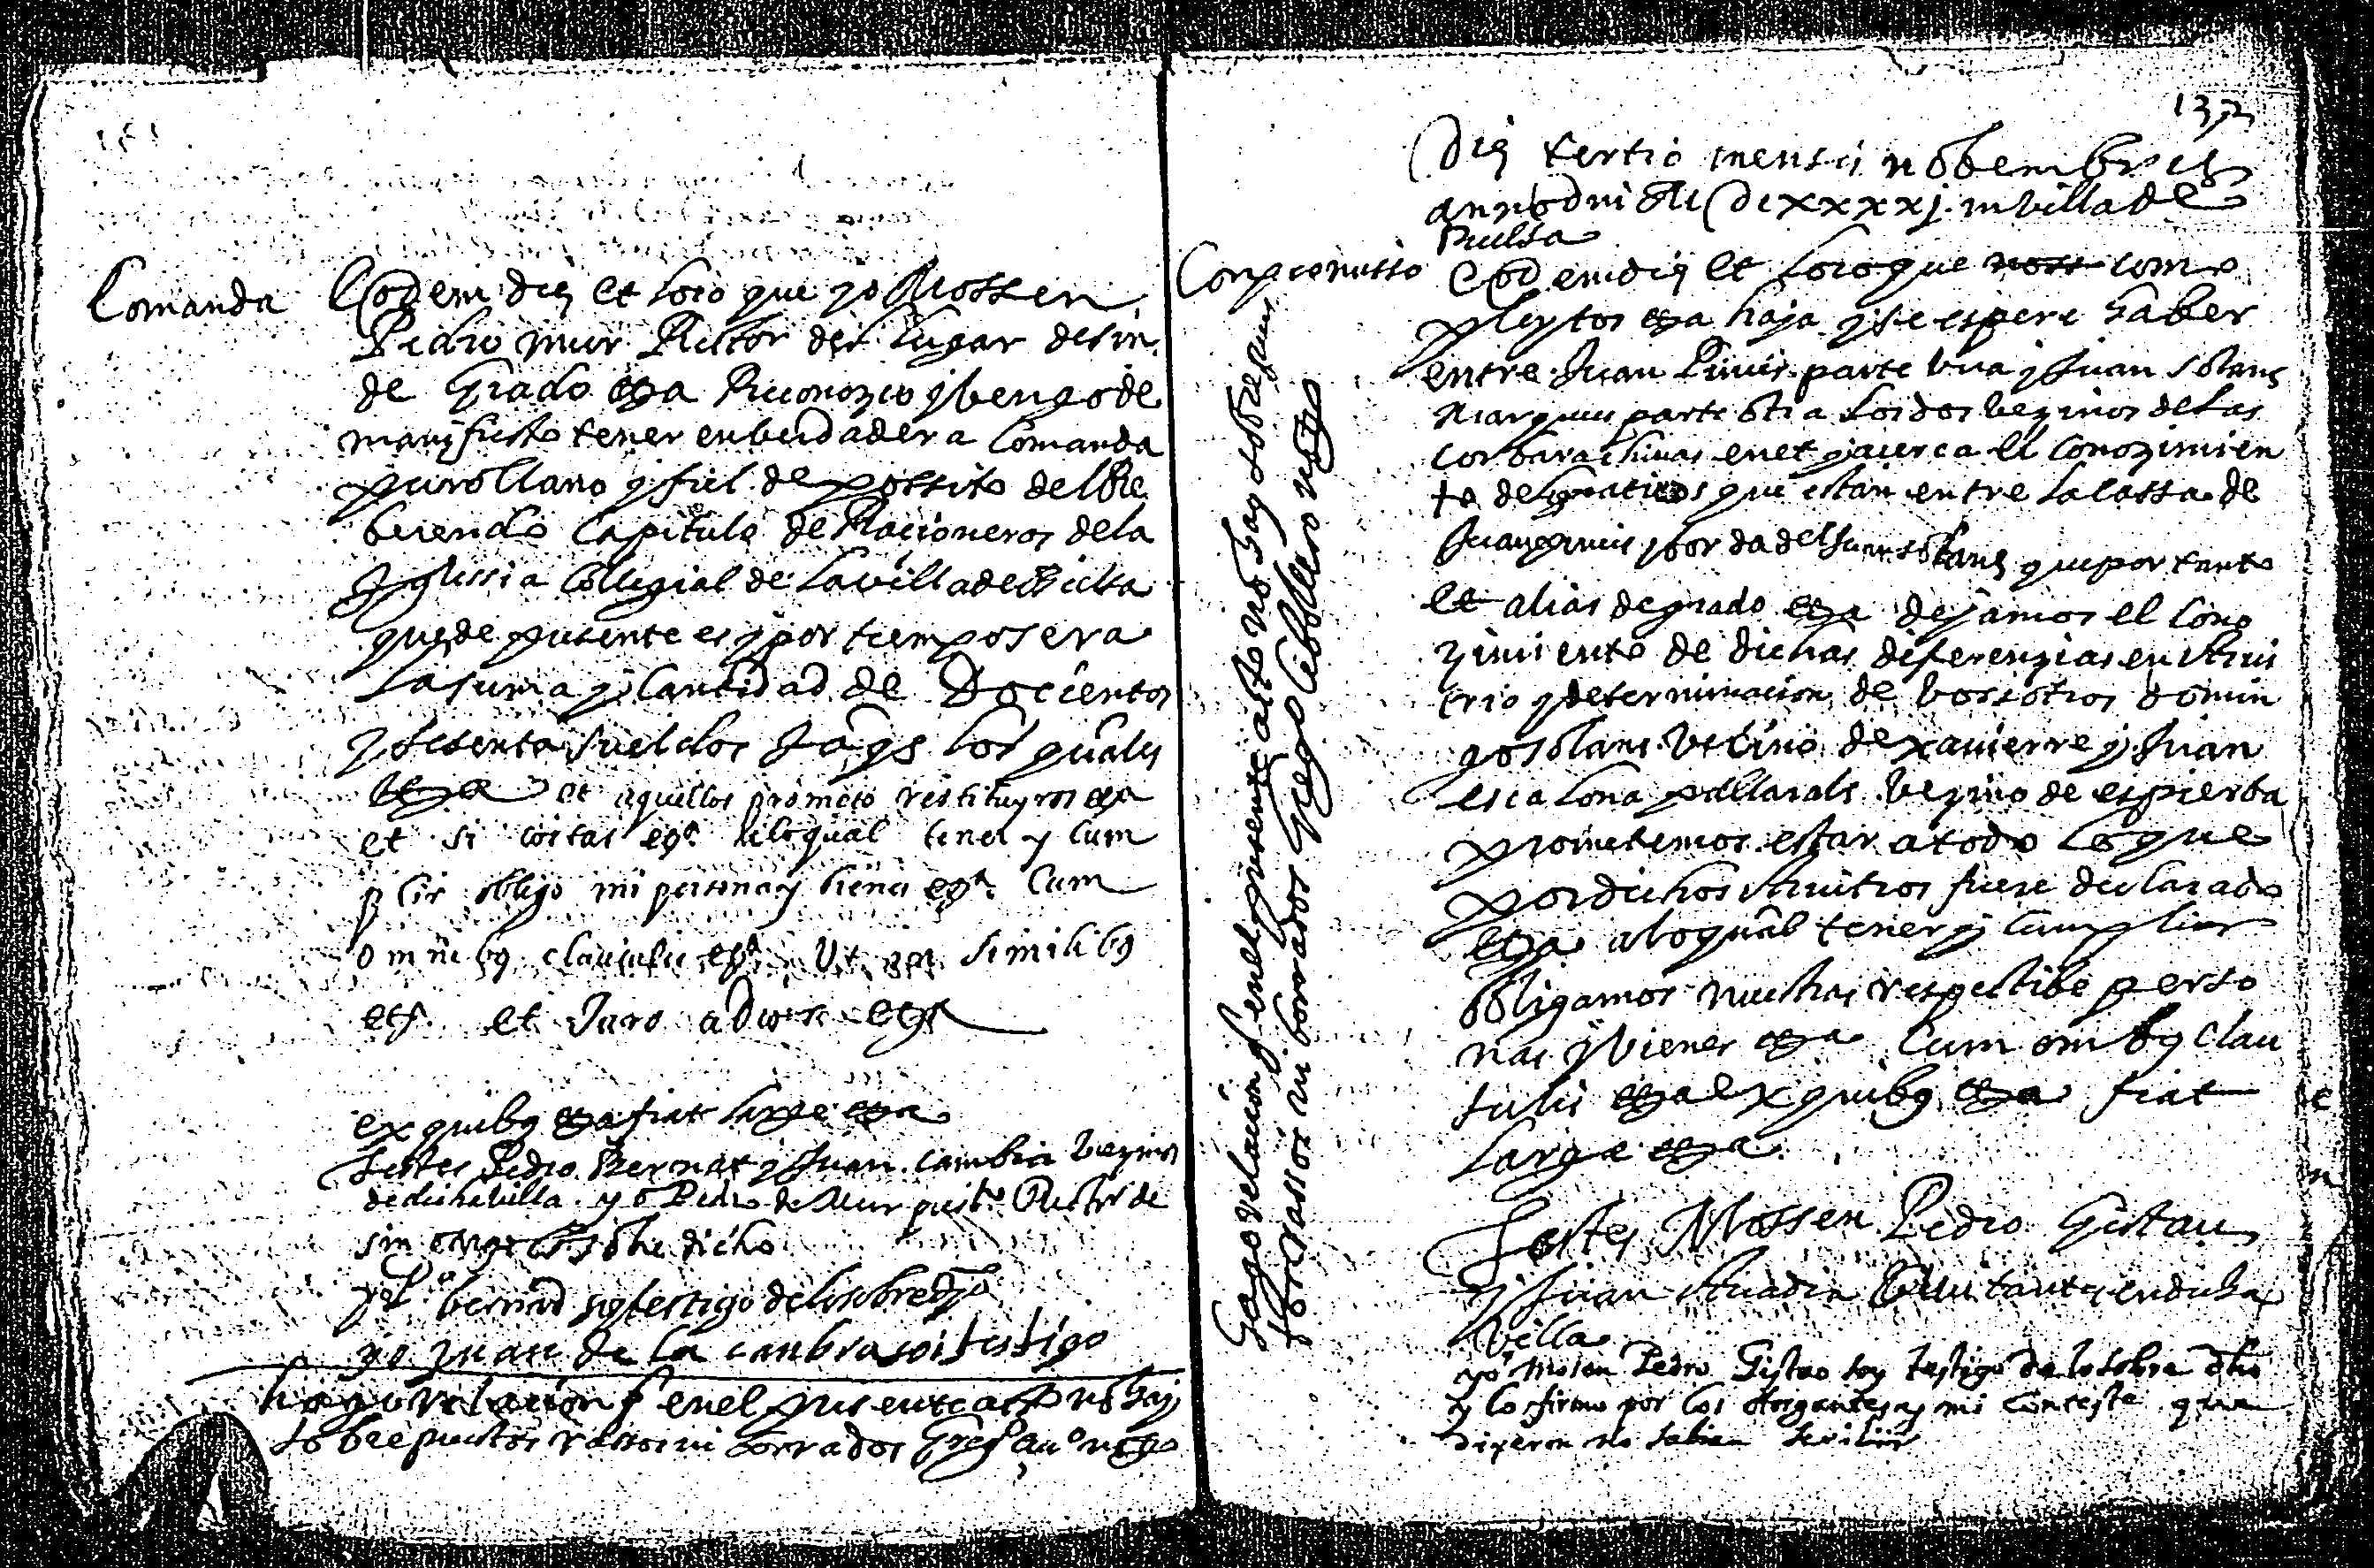 Comanda
Eodem die et loco que yo Mossen
Pedro mur Rector del lugar de sin
de Grado etza Reconozco y bengo de
manifiesto tener en berdadera Comanda
puro llano y fiel depossito del Re
berendo Capitulo de Racioneros de la
Iglessia Collegial de la villa de Bielsa
que de presente es y por tiempo sera
la suma y Cantidad de Docientos
y sesenta sueldos Jaqs los quales
etza et aquellos prometo restituyros etza
et si costas etzª lo qual tener y Cum
plir obligo mi persona y bienes etzª Cum
omnibq clausulis etzª Ut in similibq
etzª et Juro a Dios etzª
ex quibq etza fiat large etza
testes Pedro Bernat y Juan cambra bezinos
de dicha billa yo Pedro de Mur presb.º Rector de
sin otorgo lo sobre dicho
yo P.º bernad soy testigo de lo sobredº
yo Juan de la canbra soi testigo
hago relacion q en el presente acto no hay
sobrepuestos rassos ni borrados
132
Die tertio mensis nobembris
anno dni M DCXXXXj. in villa de
Bielsa
Conpromisso
Eodem die et loco que como
pleytos etza haya y se espere haber
entre Juan Pinies parte una y Juan solans
marques parte otra los dos bezinos de las
cortbarachinas en et y acerca el conozimien
to de que estan entre la cassa de
Juan pinies y borda del Juan solans que por tanto
et alias de grado etza dejamos el Cono
zimiento de dichas diferenzias en arbi
trio y determinacion de bosotros domin
go solans vecino de xavierre y Juan
escalona pallarols bezino de espierba
prometemos estar a todo lo que
por dichos arbitros fuere declarado
etza a lo qual tener y cumplir
obligamos nuestras respectibe perso
nas y bienes etza Cum omibq clau
sulis etza ex quibq etza fiat
large etza
Testes Mossen Pedro Gistau
y Juan habitantes en dicha
villa
yo mosen Pedro Gistao soy testigo de lo sobre dho
y lo firmo por los otorgantes y mi conteste que
dixeron no sabian scribir
hago relacion q en el presente acto no hay sobrepuestos
rassos ni borrados